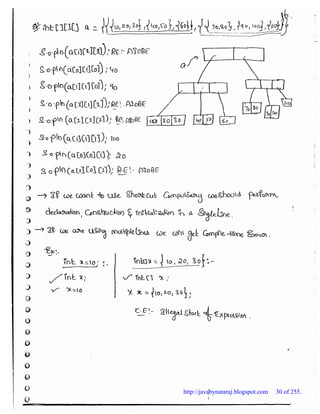 int[][][] a = {{{10,20,30},{40,50},{60}},{{70,80},{90,100},{110}}};
S.o.pln(a[1][2][3]); RE:- AIOBE
S.o.pln(a[0][1][0]); 40
S.o.pln(a[1][1][0]); 90
a
S.o.pln(a[3][1][2]); RE:- AIOBE
S.o.pln(a[2][2][2]); RE:AIOBE
10 20 30 40 50 60 70 80
S.o.pln(a[1][1][1]); 100
S.o.pln(a[0][0][1]); 20
S.o.pln(a[1][0][2]); RE:- AIOBE
→ If we want to use Shortcut Compulsory we should perform
declaration, Construction & Initialization in a Single line.
→ If we are using multiple lines we will get Compile-time Error.
Ex:-
int x=10; :-
int x;
x=10
int[] x = {10, 20, 30}:-
int[] x;
X x = {10, 20, 30};
C.E:- Illegal Start of Expression.
http://javabynataraj.blogspot.com 30 of 255.